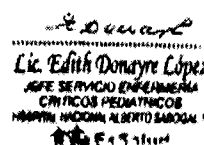 Donayre
Lic. Edith Donayre López
JEFE SERVICIO ENFERMERIA
CRITICOS PEDIATRICOS
HOSPITAL NACIONAL ALBERTO SABOGAL
EsSalud